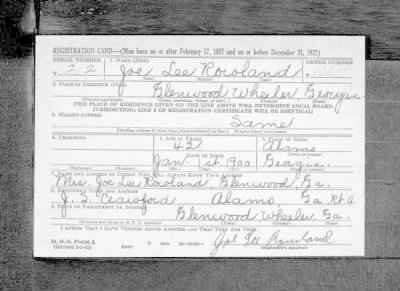 REGISTRATION CARD—(Men born on or after February 17, 1897 and on or before December 31, 1921)
SERIAL NUMBER 1. NAME (Print) ORDER NUMBER
212 Joe Lee Rowland
2. PLACE OF RESIDENCE (Print)
Glenwood Wheeler Georgia
(THE PLACE OF RESIDENCE GIVEN ON THE LINE ABOVE WILL DETERMINE LOCAL BOARD
JURISDICTION; LINE 2 OF REGISTRATION CERTIFICATE WILL BE IDENTICAL)
3. MAILING ADDRESS
Same
[Mailing address if other than place indicated on line 2. If same insert word same]
4. TELEPHONE 5. AGE IN YEARS 6. PLACE OF BIRTH
42 Alamo
DATE OF BIRTH (Town or county)
Jan. 1st 1900 Georgia
7. NAME AND ADDRESS OF PERSON WHO WILL ALWAYS KNOW YOUR ADDRESS
Mrs. Joe Lee Rowland, Glenwood, Ga.
8. EMPLOYER'S NAME AND ADDRESS
J. S. Crawford Alamo, Ga. Rt 2
9. PLACE OF EMPLOYMENT OR BUSINESS
Glenwood Wheeler Ga.
I AFFIRM THAT I HAVE VERIFIED ABOVE ANSWERS AND THAT THEY ARE TRUE.
D. S. S. Form 1
Joe Lee Rowland